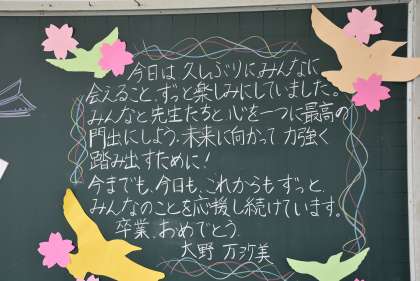 今日は 久しぶりにみんなに
会えること、ずっと楽しみにしていました。
みんなと先生たちと心を一つに最高の
門出にしよう。未来に向かって力強く
踏み出すために!
今までも、今日も、これからもずっと、
みんなのことを応援し続けています。
卒業、おめでとう。
大野 万沙美